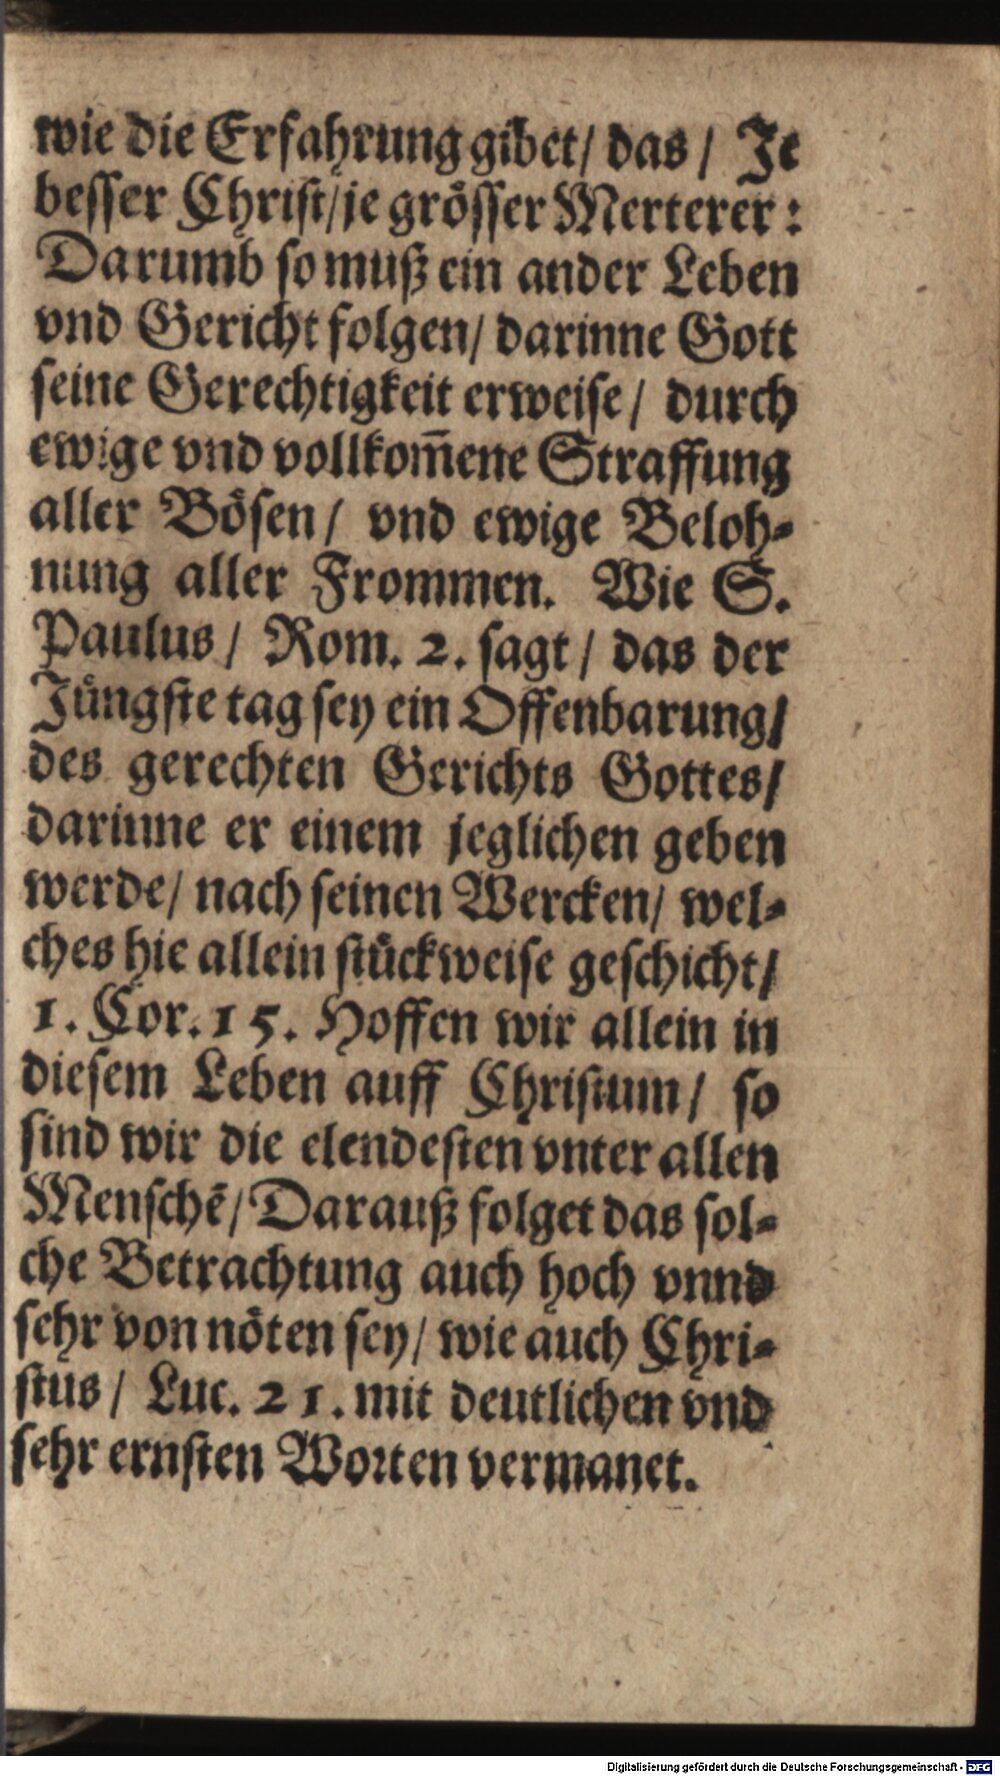 wie die Erfahrung gibet/ das/ Je
besser Christ/je grösser Merterer:
Darumb so muß ein ander Leben
vnd Gericht folgen/ darinne Gott
seine Gerechtigkeit erweise/ durch
ewige vnd vollkom̃ene Straffung
aller Bösen/ vnd ewige Beloh-
nung aller Frommen. Wie S.
Paulus/ Rom. 2. sagt/ das der
Jüngste tag sey ein Offenbarung/
des gerechten Gerichts Gottes/
darinne er einem jeglichen geben
werde/ nach seinen Wercken/ wel-
ches hie allein stückweise geschicht/
1. Cor. 15. Hoffen wir allein in
diesem Leben auff Christum/ so
sind wir die elendesten vnter allen
Menschẽ/ Darauß folget das sol-
che Betrachtung auch hoch vnnd
sehr von nöten sey/ wie auch Chri-
stus/ Luc. 21. mit deutlichen vnd
sehr ernsten Worten vermanet.
Digitalisierung gefördert durch die Deutsche Forschungsgemeinschaft - DFG